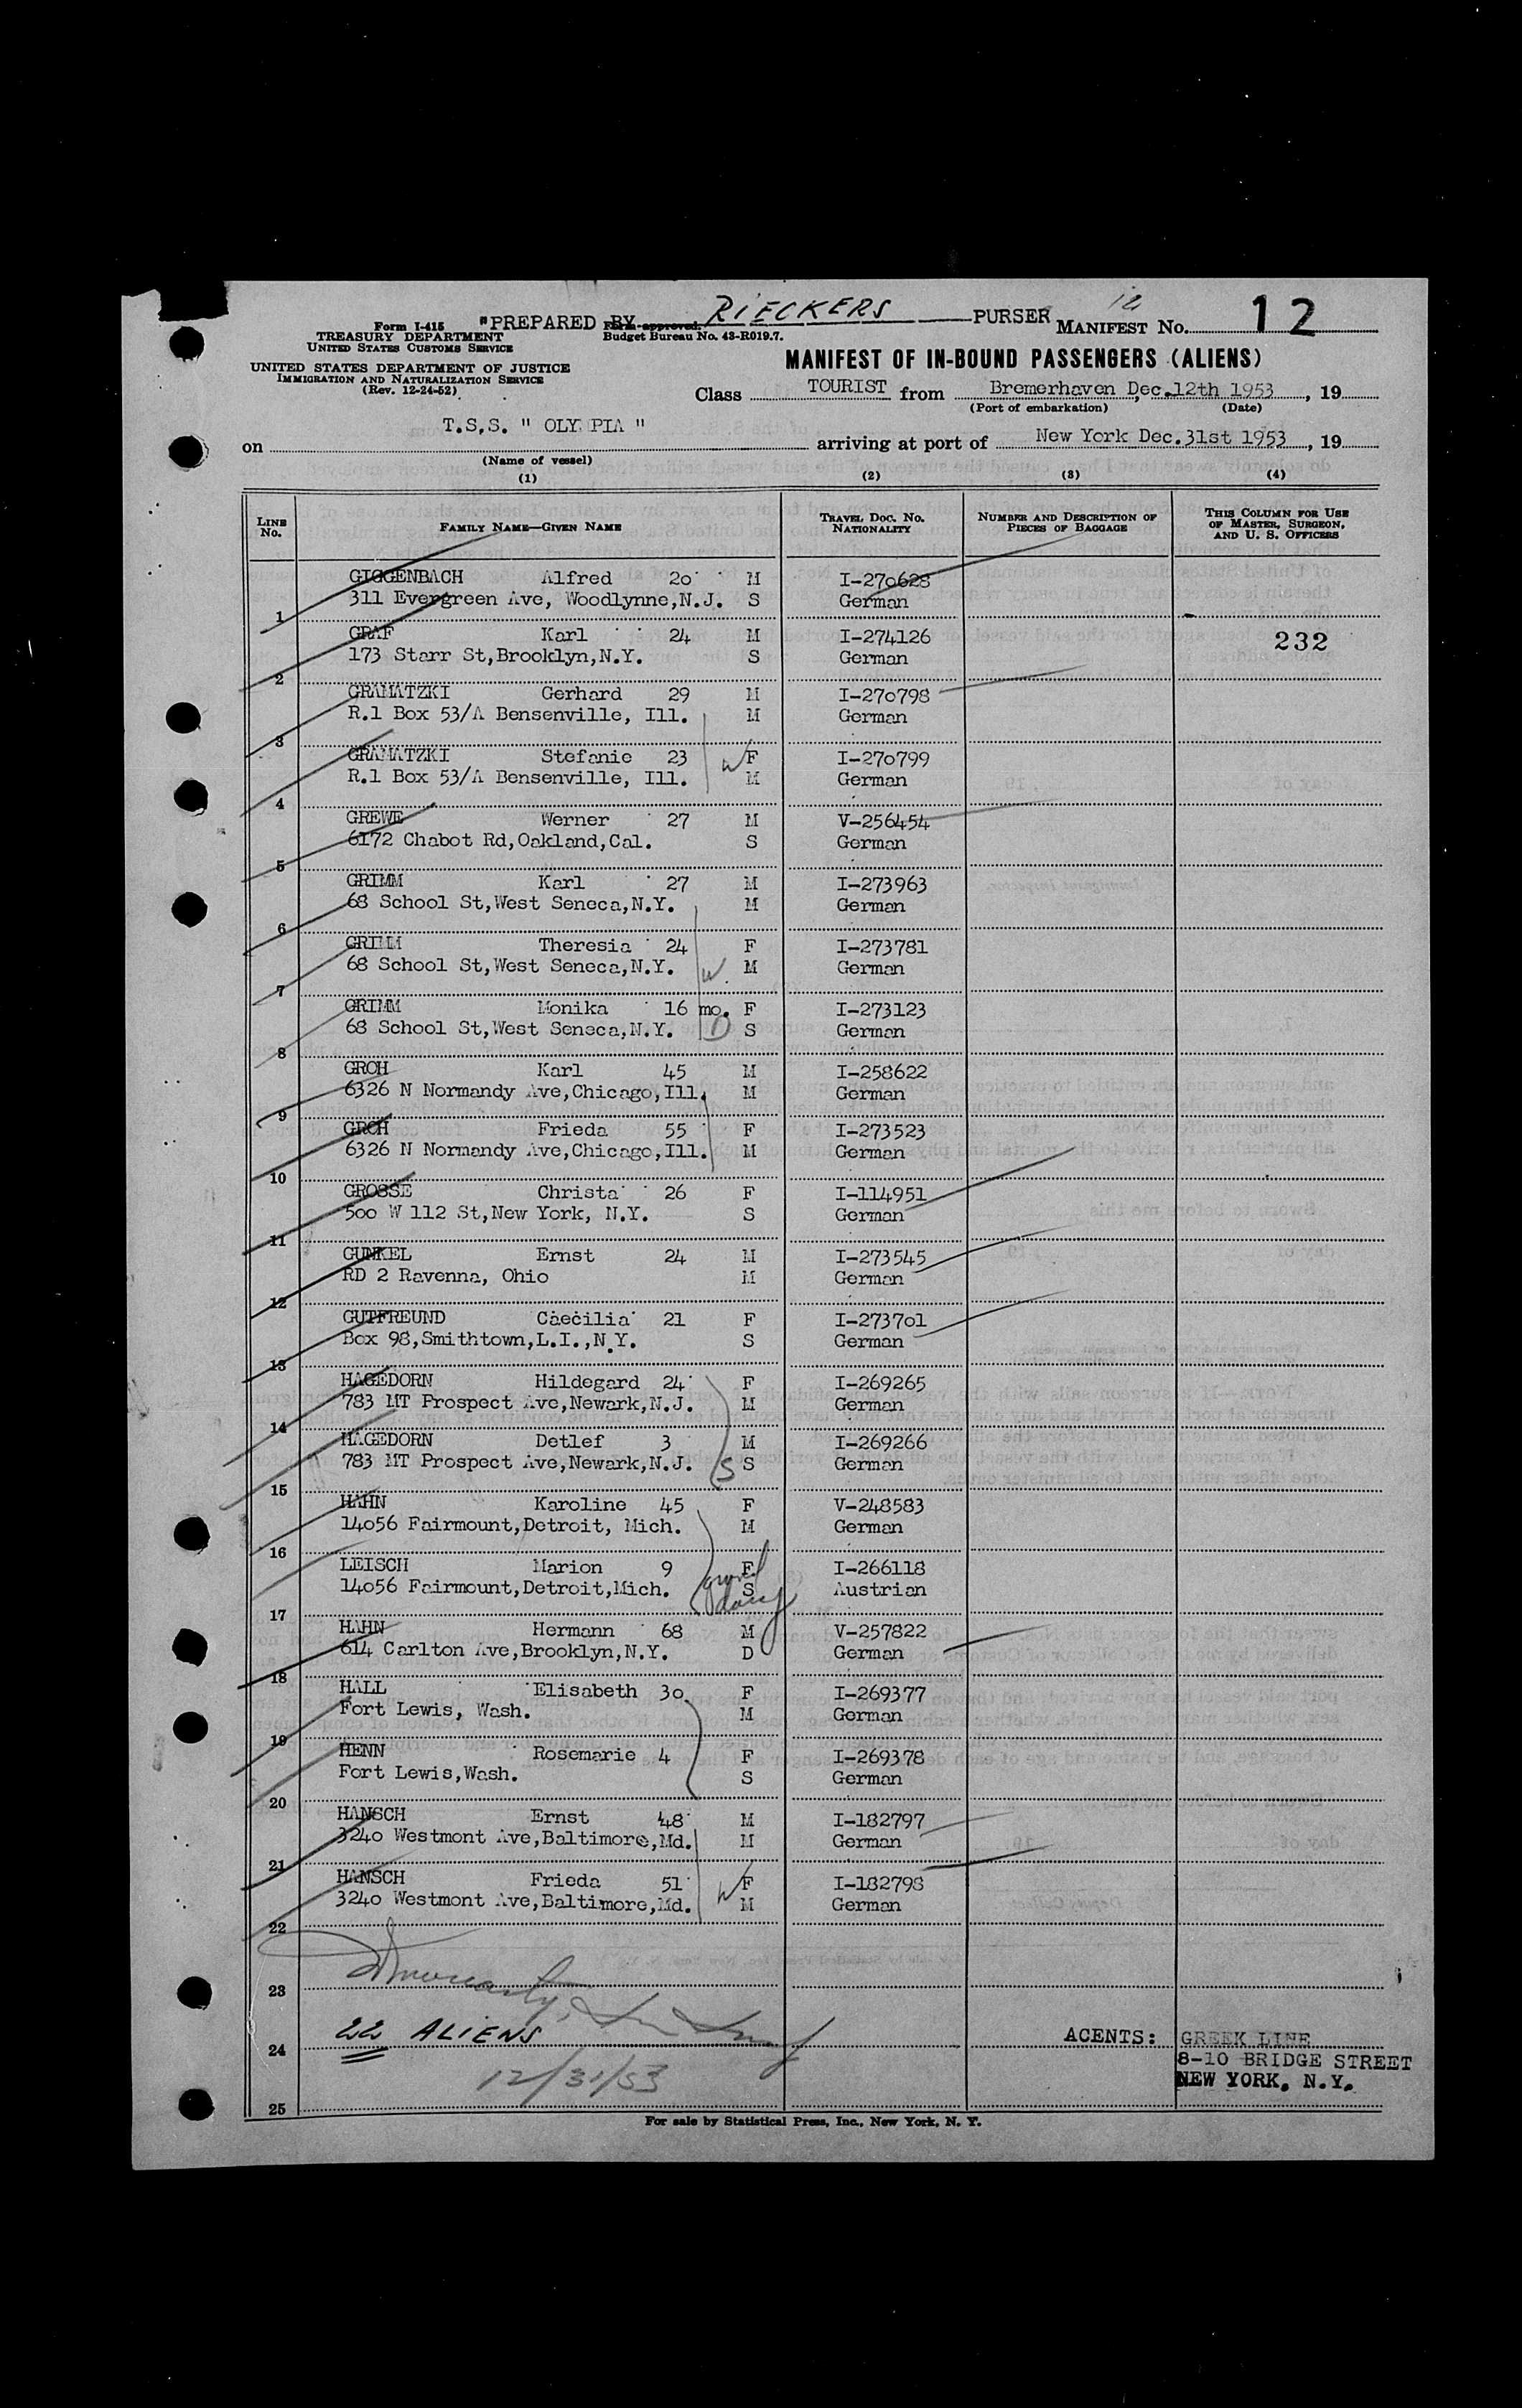 "PREPARED BY RIECKERS PURSER
12
Form I-415
TREASURY DEPARTMENT
UNITED STATES CUSTOMS SERVICE
Form approved.
Budget Bureau No. 43-R019.7.
MANIFEST NO. 12
UNITED STATES DEPARTMENT OF JUSTICE
IMMIGRATION AND NATURALIZATION SERVICE
(Rev. 12-24-52)
MANIFEST OF IN-BOUND PASSENGERS (ALIENS)
Class TOURIST from Bremerhaven, Dec.12th 1953, 19
(Port of embarkation) (Date)
on T.S.S. " OLY PIA " arriving at port of New York Dec.31st 1953, 19
(Name of vessel)
(1) (2) (3) (4)
LINE NO. FAMILY NAME—GIVEN NAME TRAVEL DOC. NO. NATIONALITY NUMBER AND DESCRIPTION OF PIECES OF BAGGAGE THIS COLUMN FOR USE OF MASTER, SURGEON, AND U. S. OFFICERS
GIGGENBACH Alfred 20 M I-270628
1 311 Evergreen Ave, Woodlynne,N.J. S German
GRAF Karl 24 M I-274126 232
2 173 Starr St,Brooklyn,N.Y. S German
GRAMATZKI Gerhard 29 M I-270798
3 R.1 Box 53/A Bensenville, Ill. M German
GRAMATZKI Stefanie 23 W F I-270799
4 R.1 Box 53/A Bensenville, Ill. M German
GREWE Werner 27 M V-256454
5 6172 Chabot Rd,Oakland,Cal. S German
GRIMM Karl 27 M I-273963
6 68 School St,West Seneca,N.Y. M German
GRIMM Theresia 24 F I-273781
7 68 School St,West Seneca,N.Y. W M German
GRIMM Monika 16 mo. F I-273123
8 68 School St,West Seneca,N.Y. D S German
GROH Karl 45 M I-258622
9 6326 N Normandy Ave,Chicago,Ill. M German
GROH Frieda 55 F I-273523
10 6326 N Normandy Ave,Chicago,Ill. M German
GROSSE Christa 26 F I-114951
11 500 W 112 St,New York, N.Y. S German
GUNKEL Ernst 24 M I-273545
12 RD 2 Ravenna, Ohio M German
GUTFREUND Caecilia 21 F I-273701
13 Box 98,Smithtown,L.I.,N.Y. S German
HAGEDORN Hildegard 24 F I-269265
14 783 MT Prospect Ave,Newark,N.J. M German
HAGEDORN Detlef 3 M I-269266
15 783 MT Prospect Ave,Newark,N.J. S S German
HAHN Karoline 45 F V-248583
16 14056 Fairmount,Detroit, Mich. M German
LEISCH Marion 9 F I-266118
17 14056 Fairmount,Detroit,Mich. grand daug S Austrian
HAHN Hermann 68 M V-257822
18 614 Carlton Ave,Brooklyn,N.Y. D German
HALL Elisabeth 30 F I-269377
19 Fort Lewis, Wash. M German
HENN Rosemarie 4 F I-269378
20 Fort Lewis,Wash. S German
HANSCH Ernst 48 M I-182797
21 3240 Westmont Ave,Baltimore,Md. M German
HANSCH Frieda 51 W F I-182798
22 3240 Westmont Ave,Baltimore,Md. M German
23
24 22 ALIENS AGENTS: GREEK LINE
12/31/53 8-10 BRIDGE STREET
25 NEW YORK, N.Y.
For sale by Statistical Press, Inc., New York, N. Y.